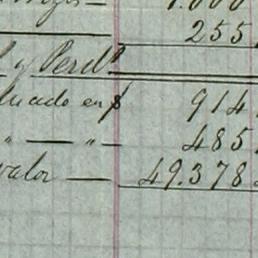 1.000
255
y Perds
luado en $ 914
" — " — 485
valor — 49.378